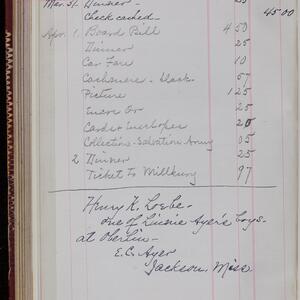 Mar. 31 Dinner - 25
Check cashed - 45 00
Apr. 1. Board Bill 4 50
Dinner 25
Car Fare 10
Cashmere - black 57
Picture 1 25
25
Cards & Envelopes 20
Collection - Salvation Army 05
2 Dinner 25
Ticket to Millbury 97
Henry K. Loebe -
one of Linnie Ayers boys -
at Oberlin -
E. C. Ayer
Jackson, Miss